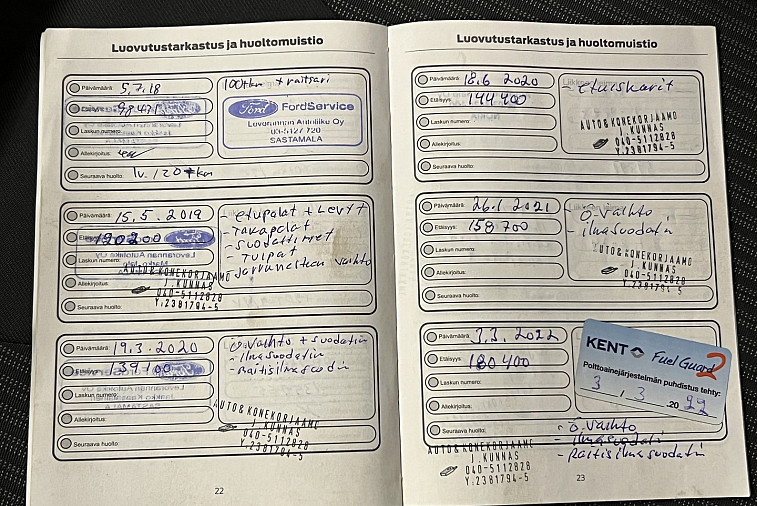 Luovutustarkastus ja huoltomuistio
Päivämäärä: 5.7.18
Laskun numero:
Allekirjoitus:
Seuraava huolto: 1v. / 20 tkm
100tkm + raitsari
Ford FordService
Levorannan Autoliike Oy
03-5127 720
SASTAMALA
Päivämäärä: 15.5.2019
Etäisyys: 120200
Laskun numero:
Allekirjoitus:
Seuraava huolto:
- etupalat + Levyt
- takapalat
- suodattimet
- tulpat
- jarrunesteen vaihto
AUTO & KONEKORJAAMO
J. KUNNAS
040-5112828
Y.2381794-5
Päivämäärä: 19.3.2020
Etäisyys: 139100
Laskun numero:
Allekirjoitus:
Seuraava huolto:
ö.vaihto + suodatin
- ilmasuodatin
- raitisilmasuodatin
AUTO & KONEKORJAAMO
J. KUNNAS
040-5112828
Y.2381794-5
22
Luovutustarkastus ja huoltomuistio
Päivämäärä: 18.6 2020
Etäisyys: 144400
Laskun numero:
Allekirjoitus:
Seuraava huolto:
- etuiskarit
AUTO & KONEKORJAAMO
J. KUNNAS
040-5112828
Y.2381794-5
Päivämäärä: 26.1 2021
Etäisyys: 158 700
Laskun numero:
Allekirjoitus:
Seuraava huolto:
- ö.vaihto
- ilmasuodatin
AUTO & KONEKORJAAMO
J. KUNNAS
040-5112828
Y.2381794-5
Päivämäärä: 3.3. 2022
Etäisyys: 180400
Laskun numero:
Allekirjoitus:
Seuraava huolto:
KENT Fuel Guard 2
Polttoainejärjestelmän puhdistus tehty:
3 / 3 .20 22
- ö.vaihto
- ilmasuodatin
- raitisilmasuodatin
AUTO & KONEKORJAAMO
J. KUNNAS
040-5112828
Y.2381794-5
23